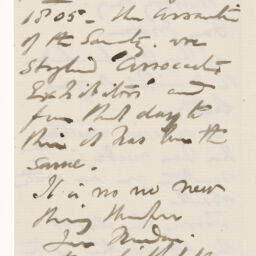 1805 - the Associates
of the Society were
styled "Associate
Exhibitors" and
from that day to
this it has been the
same.
It is no no new
thing therefore